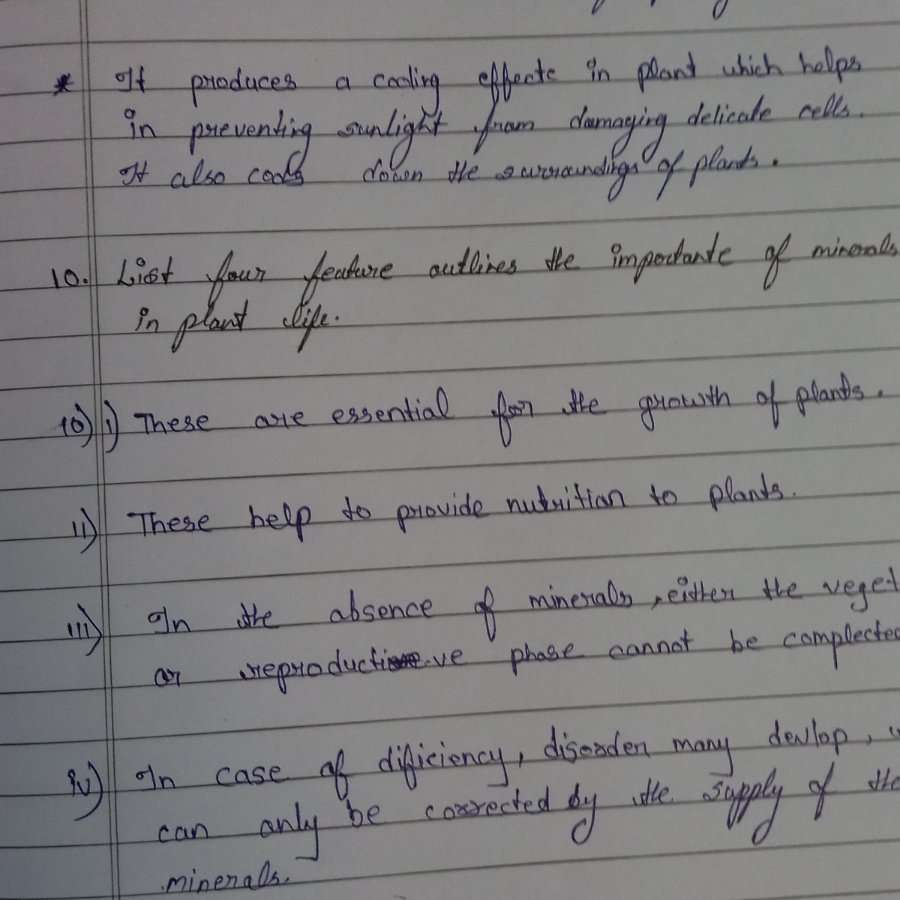 * It produces a cooling effecte in plant which helps
in preventing sunlight from damaging delicate cells.
It also cools down the surroundings of plants.
10. List four feature outlines the importante of minerals
in plant life.
10) i) These are essential for the growth of plants.
ii) These help to provide nutrition to plants.
iii) In the absence of minerals, either the veget
or reproductive phase cannot be complected
iv) In case of dificiency, disorder many devlop,
can only be corrected by the supply of the
minerals.